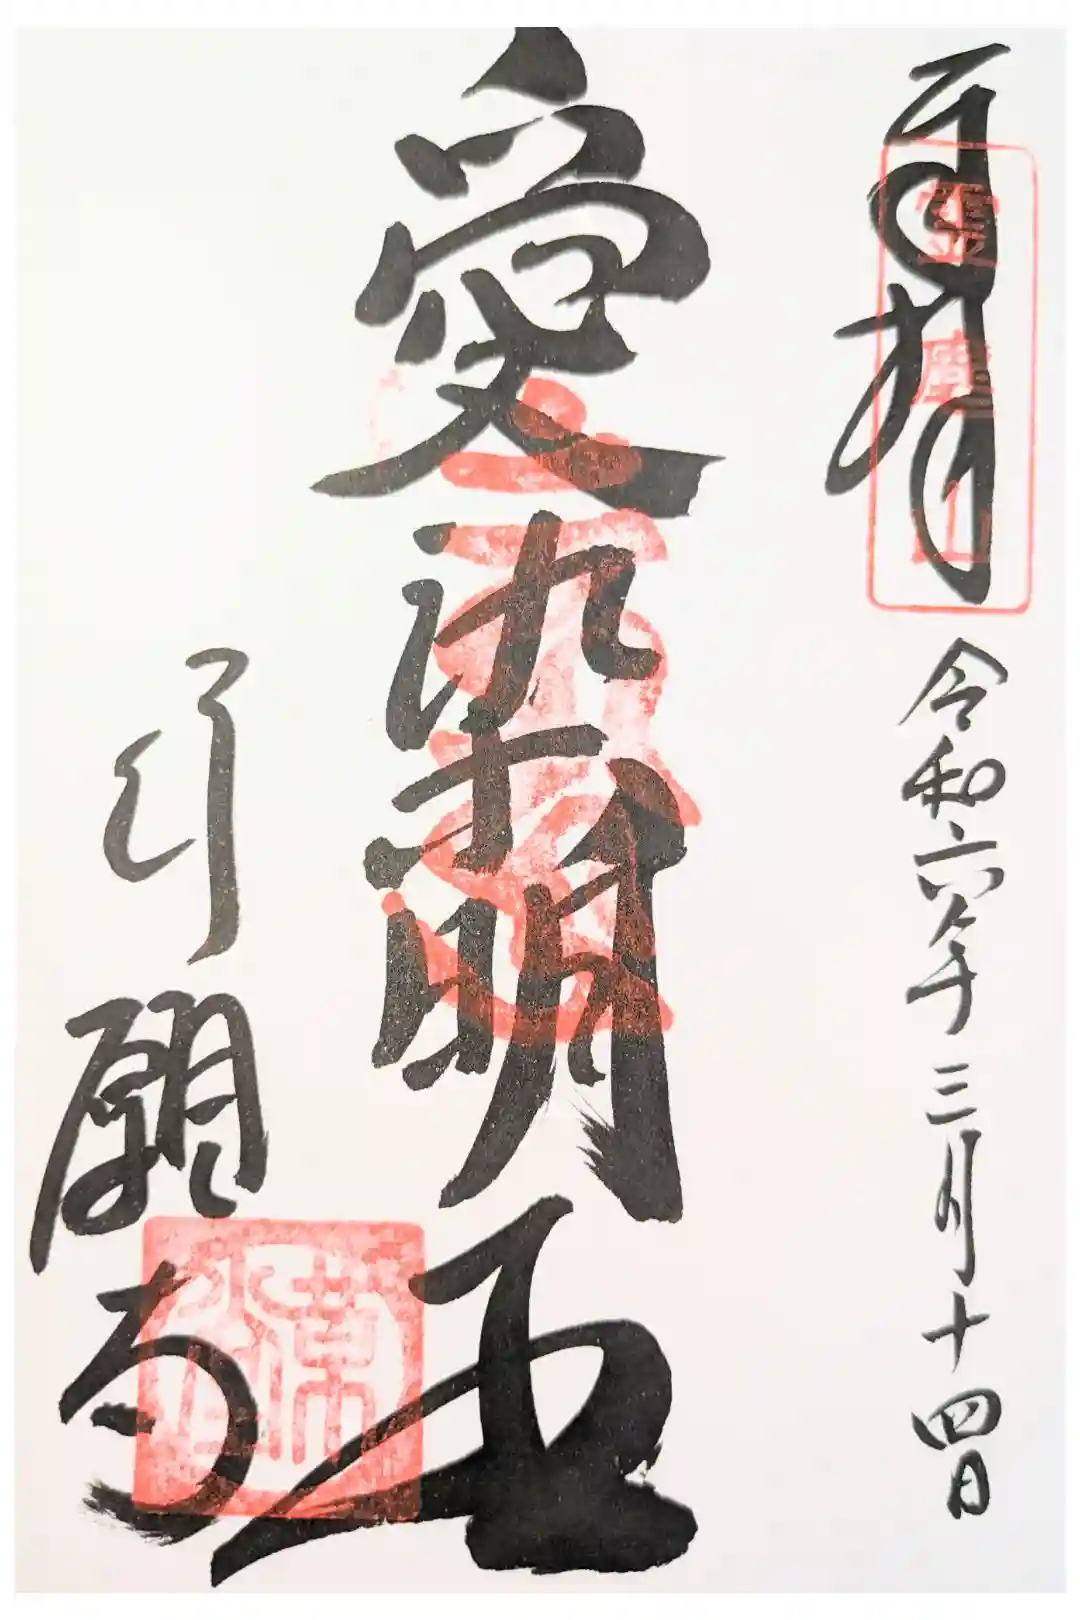 奉拝
令和六年三月十四日
愛染明王
引願寺